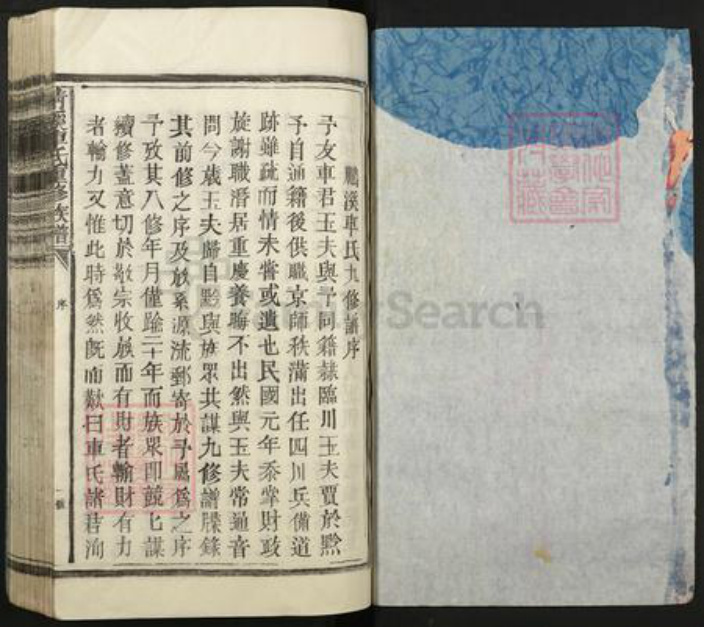 鵬溪車氏九修譜序
予友車君玉夫與予同籍隸臨川玉夫賈於黔
予自通籍後供職京師秩滿出任四川兵備道
跡雖疏而情未嘗或遺也民國元年忝掌財政
旋謝職潛居重慶養晦不出然與玉夫常通音
問今歲玉夫歸自黔與族眾共謀九修譜牒錄
其前修之序及族系源流郵寄於予屬為之序
予攷其八修年月僅踰二十年而族眾即兢兢謀
續修蓋意切於敬宗收族而有財者輸財有力
者輸力又惟此時為然既而歎曰車氏諸君洵
車氏重修族譜
序
FamilySearch